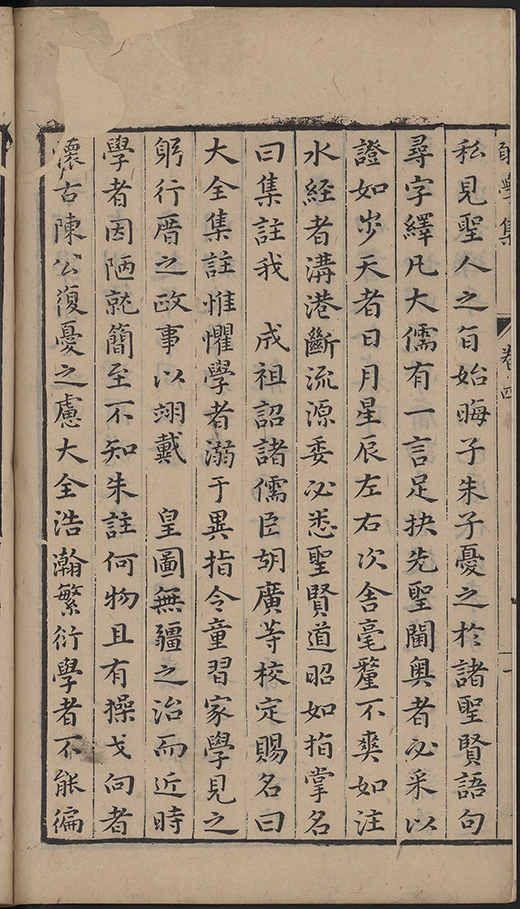 學集
卷四
私見聖人之旨始晦子朱子憂之於諸聖賢語句
尋字繹凡大儒有一言足抉先聖閫奧者必采以
證如步天者日月星辰左右次舍毫釐不爽如注
水經者溝港斷流源委必悉聖賢道昭如指掌名
曰集註我 成祖詔諸儒臣胡廣等校定賜名曰
大全集註惟懼學者溺于異指令童習家學見之
躬行厝之政事以翊戴 皇圖無疆之治而近時
學者因陋就簡至不知朱註何物且有操戈向者
懷古陳公復憂之慮大全浩瀚繁衍學者不能徧